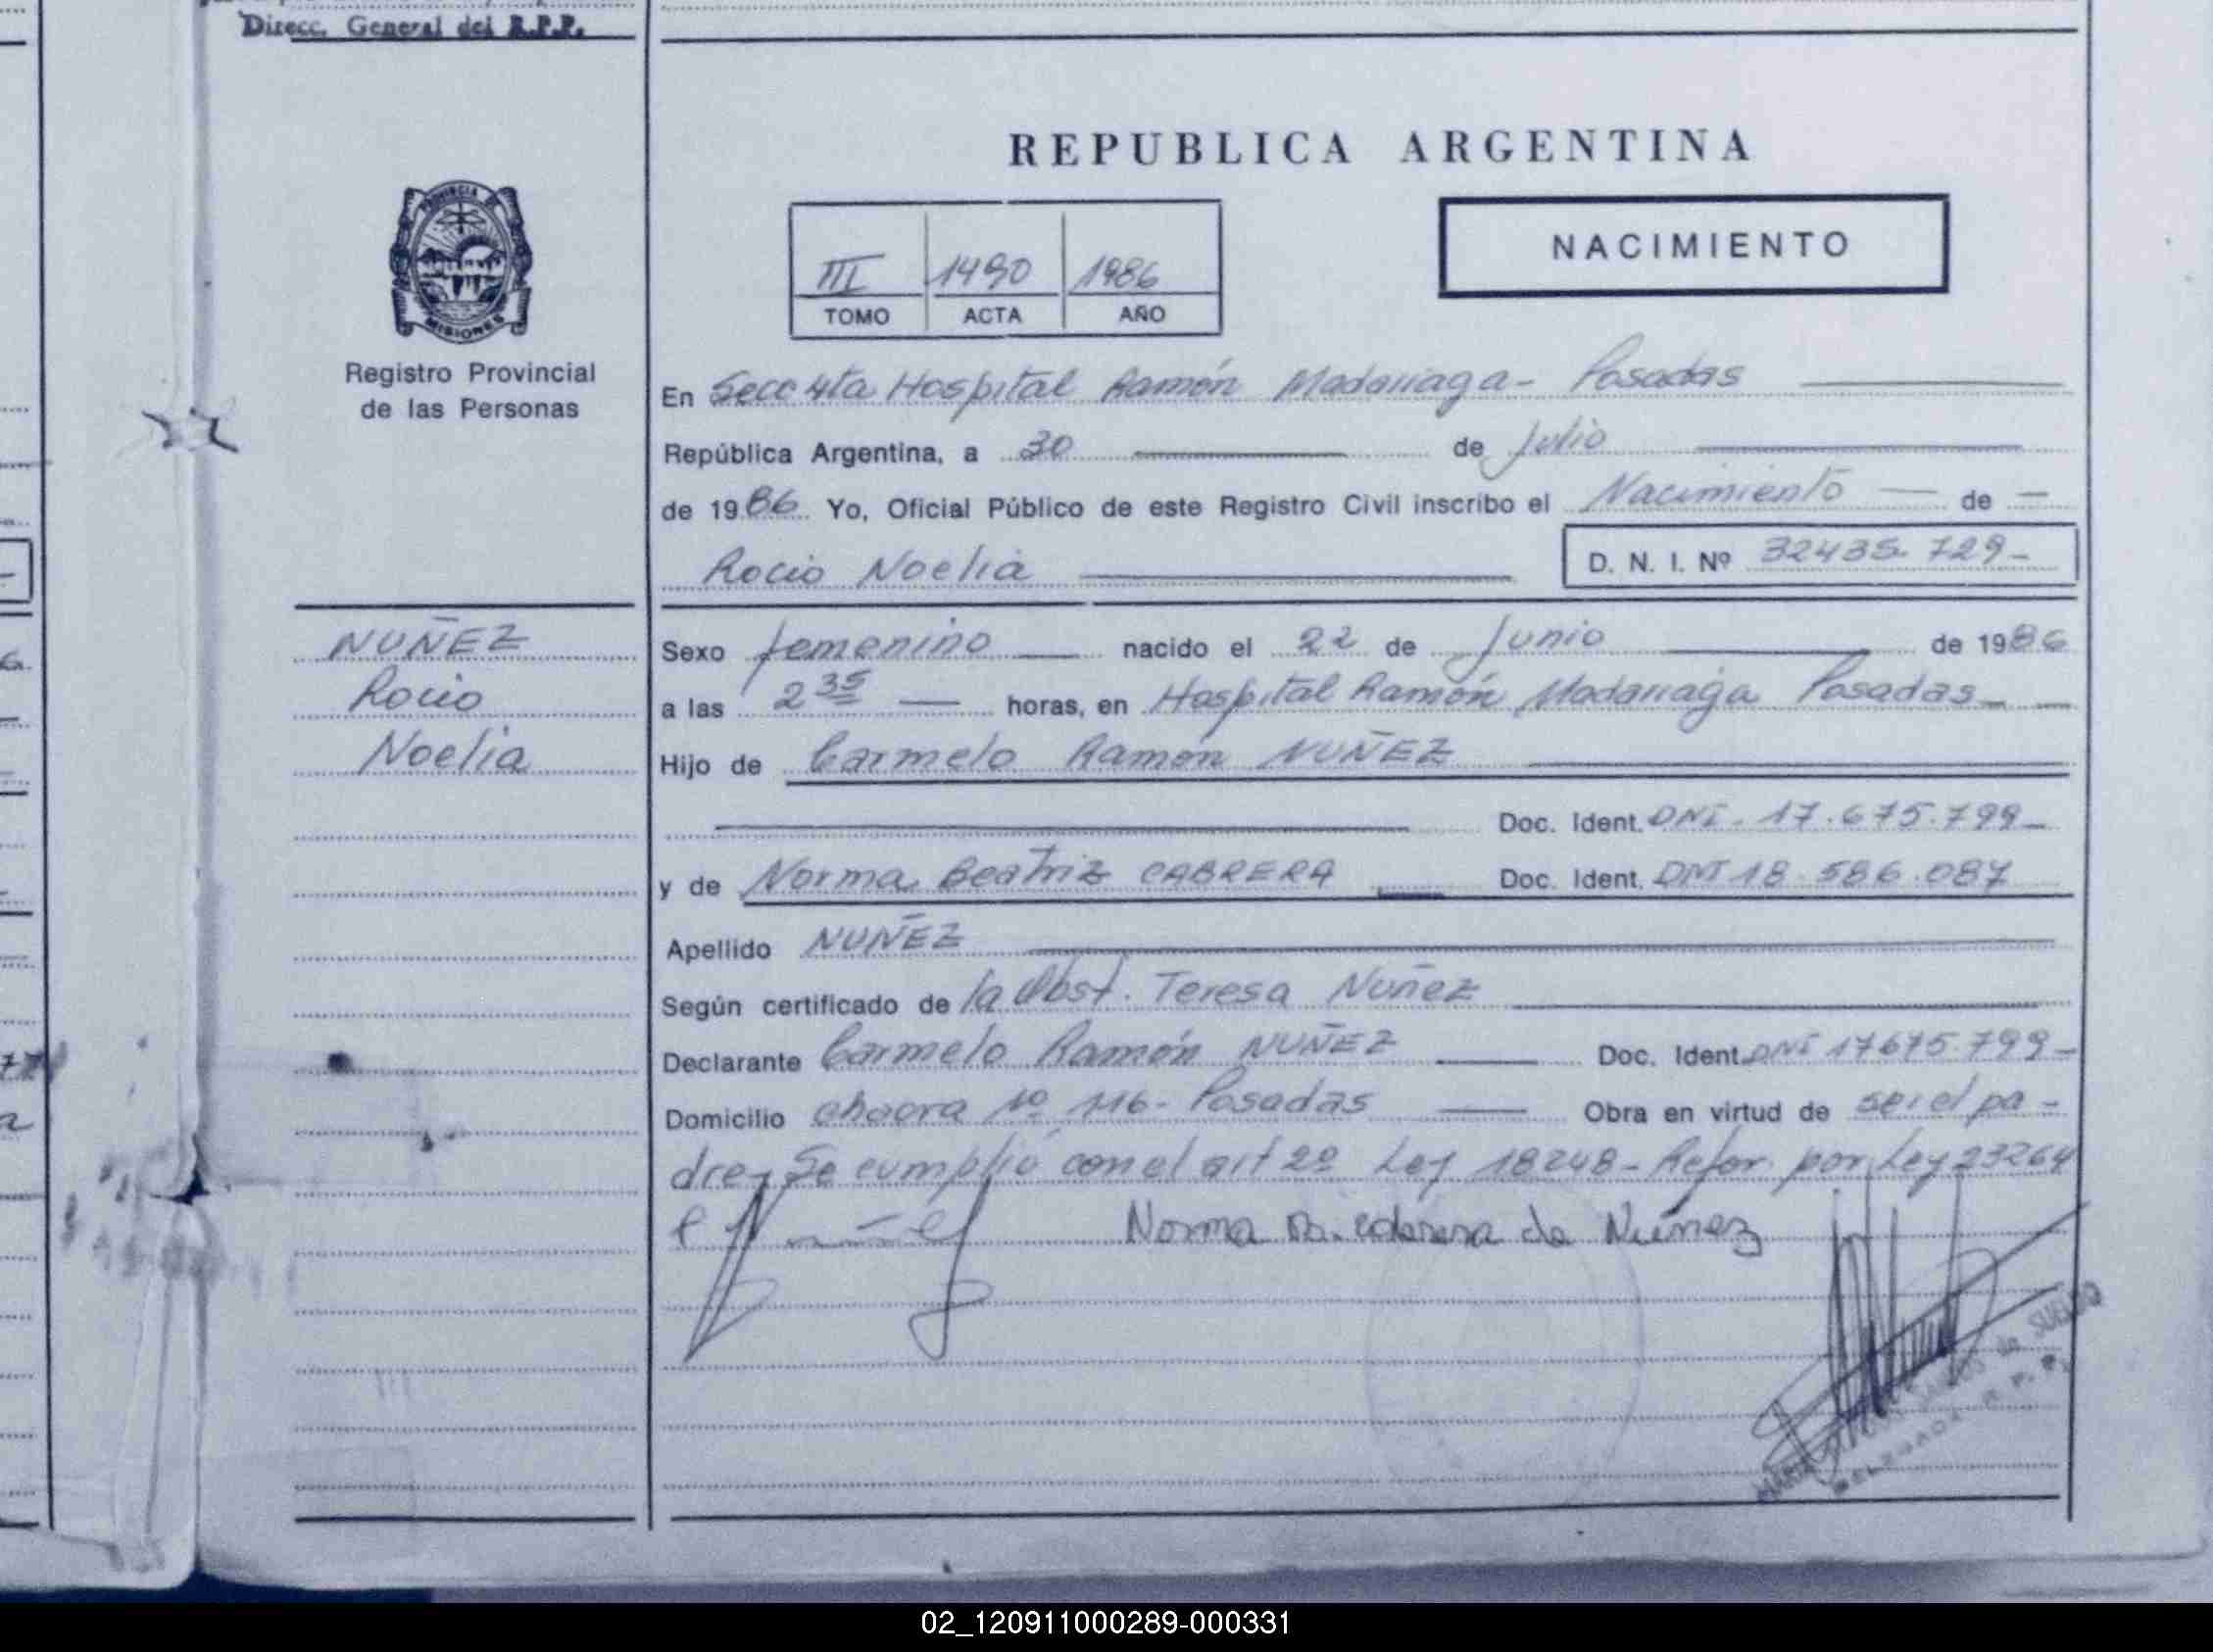 Direcc. General del R.P.P.
REPUBLICA ARGENTINA
PROVINCIA DE
MISIONES
Registro Provincial
de las Personas
III 1490 1986
TOMO ACTA AÑO
NACIMIENTO
En Secc 4ta Hospital Ramón Madariaga - Posadas
República Argentina, a 30 de Julio
de 1986 Yo, Oficial Público de este Registro Civil inscribo el Nacimiento de
Rocio Noelia D. N. I. Nº 32435.729-
NUÑEZ
Rocio
Noelia
Sexo femenino nacido el 22 de Junio de 1986
a las 2 35 horas, en Hospital Ramón Madariaga Posadas
Hijo de Carmelo Ramón NUÑEZ
Doc. Ident. DNI. 17.675.799-
y de Norma Beatriz CABRERA Doc. Ident. DNI 18.586.087
Apellido NUÑEZ
Según certificado de la Obst. Teresa Nuñez
Declarante Carmelo Ramón NUÑEZ Doc. Ident. DNI 17675.799-
Domicilio chacra Nº 116- Posadas Obra en virtud de ser el pa-
dre- Se cumplió con el art 2º Ley 18248- Refor. por Ley 23264
Norma B. Cabrera de Nuñez
de SUELDO
DELEGADA R. P. P.
02_120911000289-000331